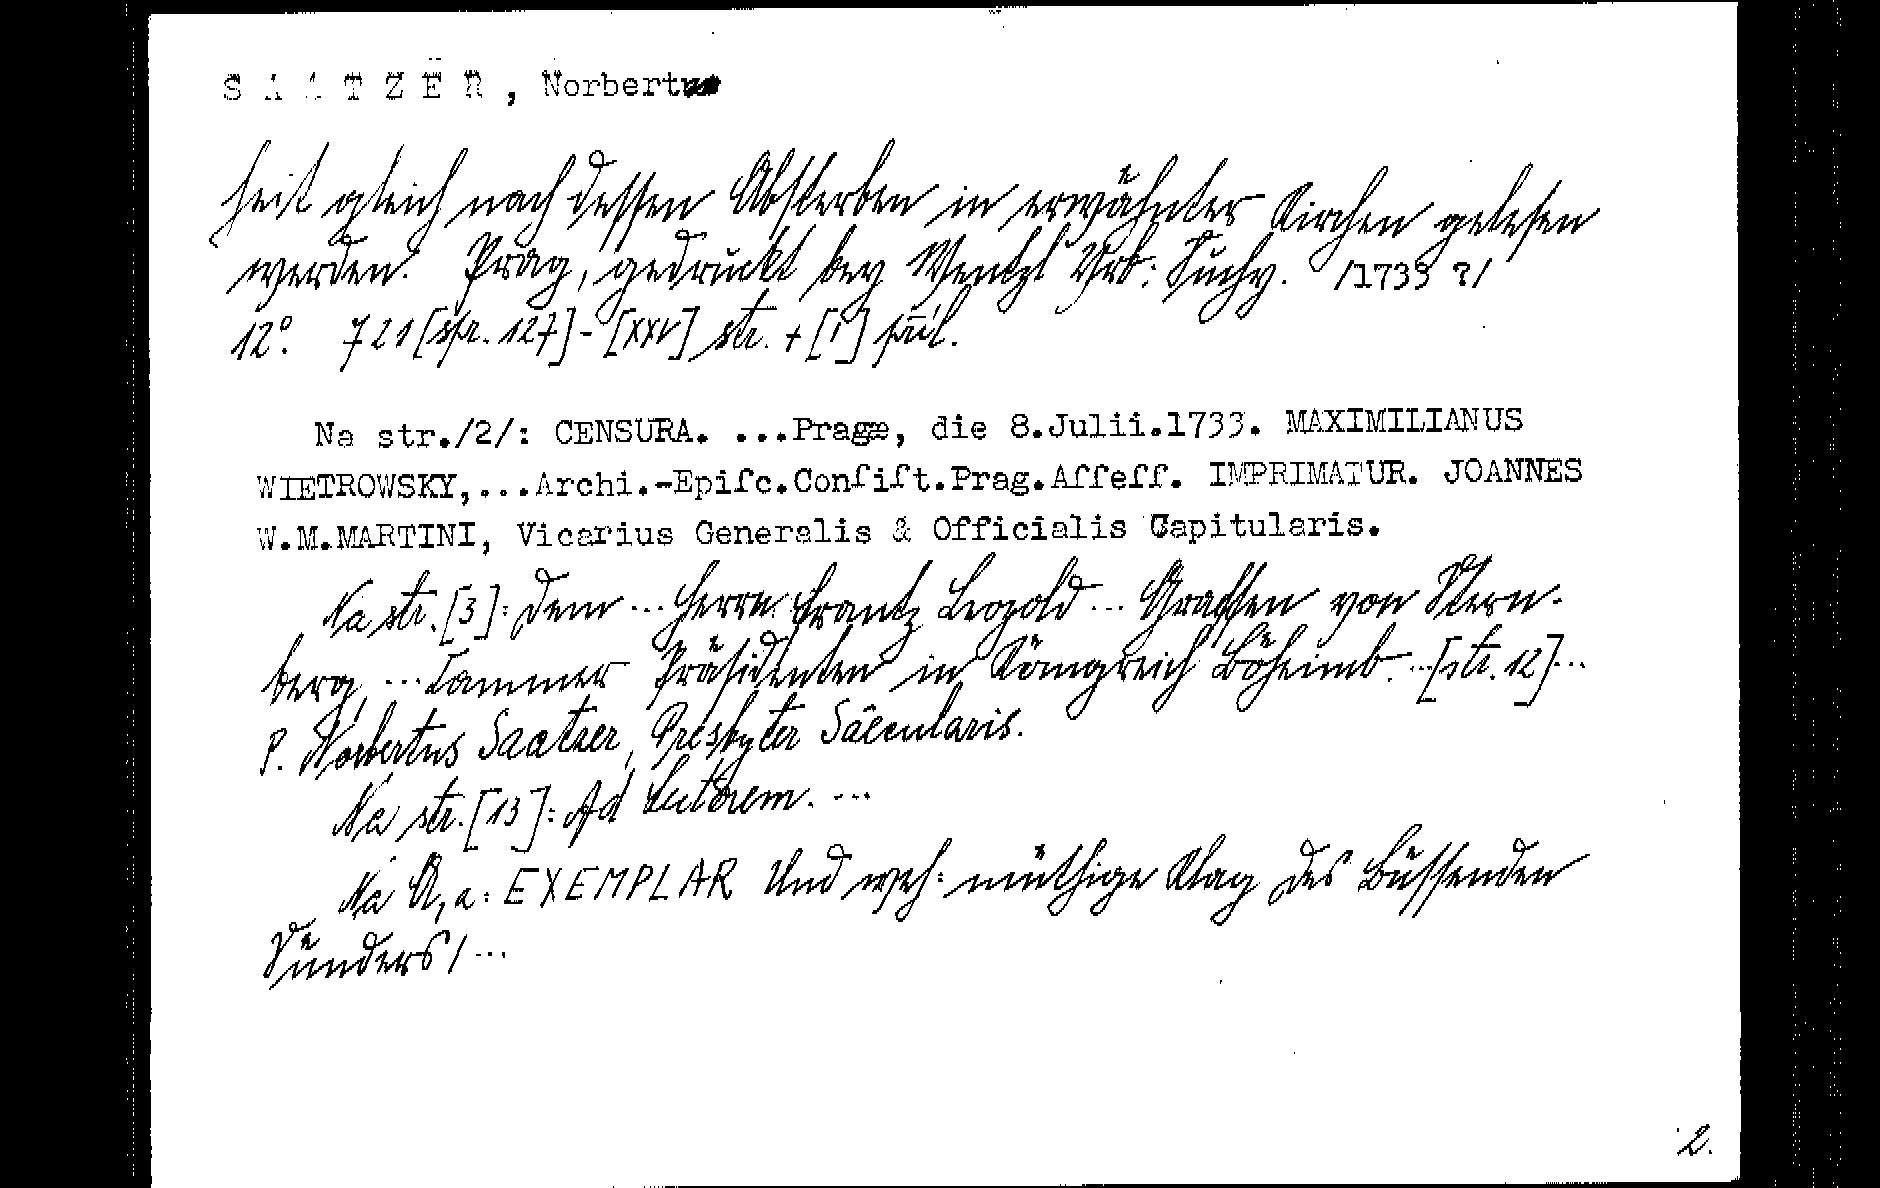 S A A T Z E R , Norbert
heit gleich nach dessen Absterben in erwähnter Kirchen gelesen
werden. Prag, gedruckt bey Wentzl Urb: Suchy. /1733 ?/
12°. 721 [spr. 127] - [XXV] str. + [1] příl.
Na str./2/: CENSURA. ...Pragæ, die 8.Julii.1733. MAXIMILIANUS
WIETROWSKY,...Archi.-Epiſc.Conſiſt.Prag.Aſſeſſ. IMPRIMATUR. JOANNES
W.M.MARTINI, Vicarius Generalis & Officialis Capitularis.
Na str. [3]: Dem ... Herrn Frantz Leopold ... Graffen von Stern-
berg, ... Cammer Präsidenten in Königreich Böheimb. ... [str. 12] ...
P. Norbertus Saatzer, Presbyter Sæcularis.
Na str. [13]: Ad Lectorem. ...
Na A,a: EXEMPLAR Und weh= müthige Klag des Büssenden
Sünders / ...
2.